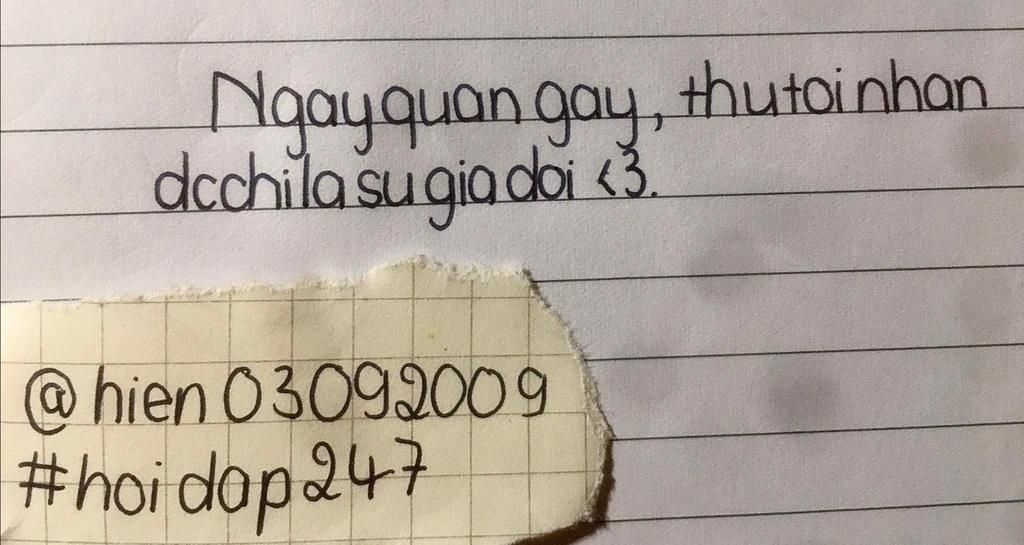 Ngay quan gay, thu toi nhan
dc chi la su gia doi <3.
@hien03092009
#hoidap247